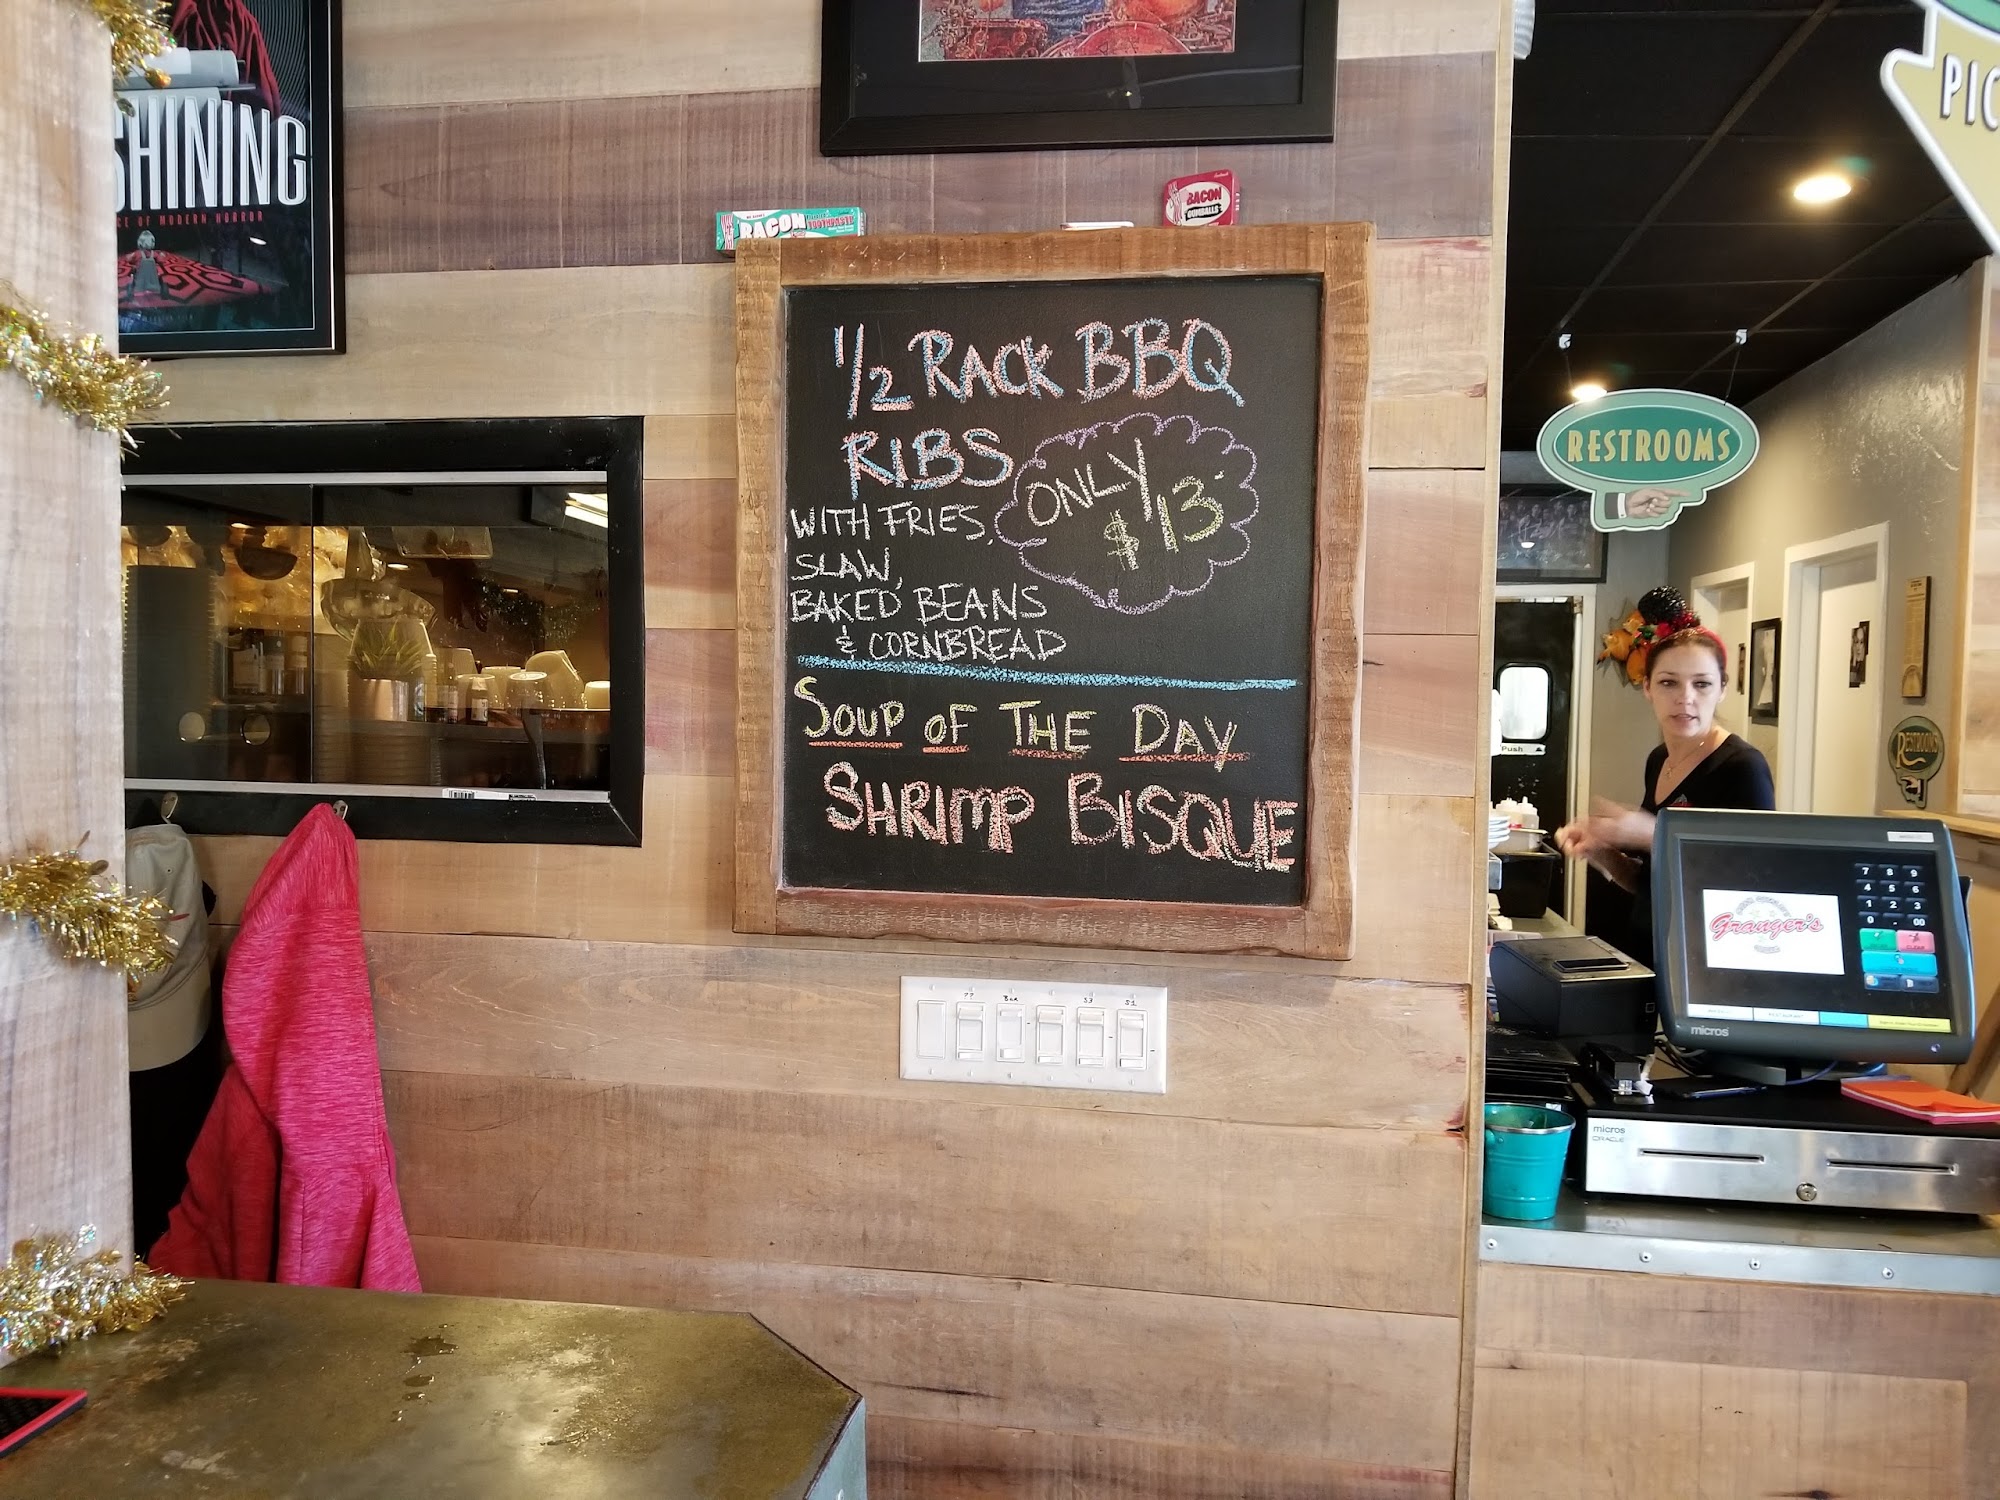 SHINING
CE OF MODERN HORROR
BACON
TOOTHPASTE
BACON
GUMBALLS
1/2 RACK BBQ
RIBS
ONLY
$13
WITH FRIES,
SLAW,
BAKED BEANS
& CORNBREAD
SOUP OF THE DAY
SHRIMP BISQUE
PIC
RESTROOMS
RESTROOMS
Push
Granger's
7 8 9
4 5 6
1 2 3
0 . 00
CLEAR
micros
micros
ORACLE
?? Bar S3 S1